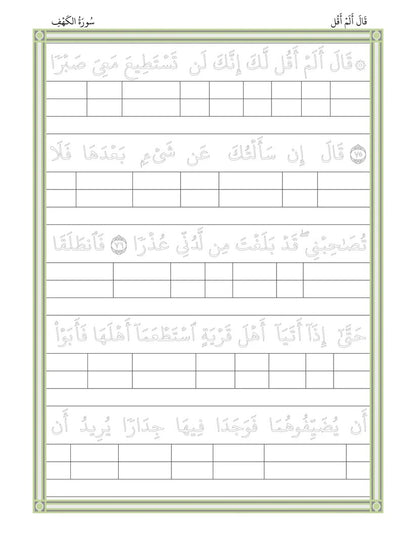 قَالَ أَلَمْ أَقُل سُورَةُ الكَهْفِ
۞ قَالَ أَلَمْ أَقُل لَّكَ إِنَّكَ لَن تَسْتَطِيعَ مَعِىَ صَبْرًا
٧٥ قَالَ إِن سَأَلْتُكَ عَن شَىْءٍۭ بَعْدَهَا فَلَا
تُصَـٰحِبْنِى ۖ قَدْ بَلَغْتَ مِن لَّدُنِّى عُذْرًا ٧٦ فَٱنطَلَقَا
حَتَّىٰٓ إِذَآ أَتَيَآ أَهْلَ قَرْيَةٍ ٱسْتَطْعَمَآ أَهْلَهَا فَأَبَوْا۟
أَن يُضَيِّفُوهُمَا فَوَجَدَا فِيهَا جِدَارًا يُرِيدُ أَن